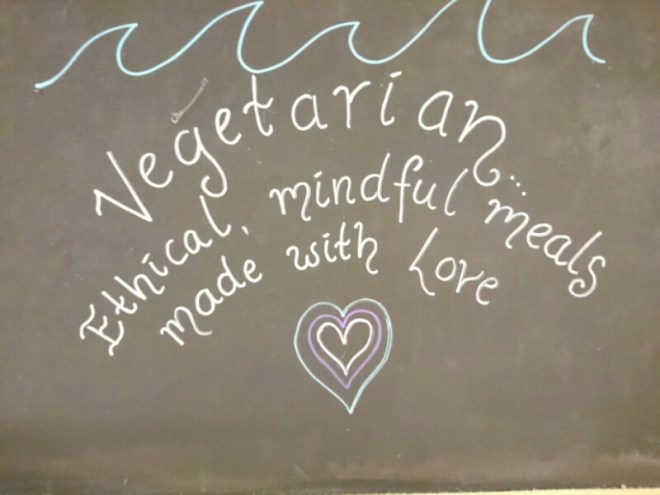 Vegetarian...
Ethical, mindful meals
made with Love